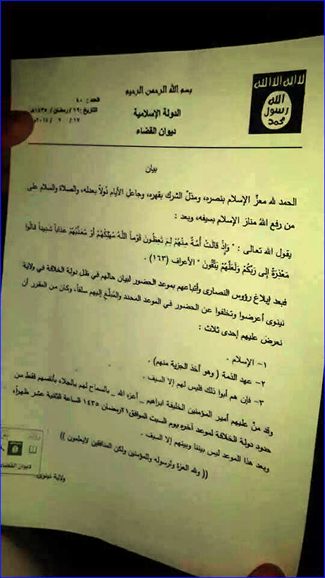 بسم الله الرحمن الرحيم
لا إله إلا الله
الله
رسول
محمد
العدد : ٤٠
الدولة الإسلامية
التاريخ : ١٩/رمضان/١٤٣٥هـ
ديوان القضاء
بيان
الحمد لله معزِّ الإسلام بنصره، ومذلِّ الشرك بقهره، وجاعلِ الأيام دُولاً بعدله، والصلاة والسلام على
من رفع اللهُ منارَ الإسلام بسيفه، وبعد :
يقول الله تعالى : " وَإِذْ قَالَتْ أُمَّةٌ مِنْهُمْ لِمَ تَعِظُونَ قَوْماً اللَّهُ مُهْلِكُهُمْ أَوْ مُعَذِّبُهُمْ عَذَاباً شَدِيداً قَالُوا
مَعْذِرَةً إِلَى رَبِّكُمْ وَلَعَلَّهُمْ يَتَّقُونَ " الأعراف (١٦٣) .
فبعد إبلاغ رؤوس النصارى وأتباعهم بموعد الحضور لبيان حالهم في ظل دولة الخلافة في ولاية
نينوى أعرضوا وتخلفوا عن الحضور في الموعد المحدد والمُبلَّغ إليهم سلفاً، وكان من المقرر أن
نعرض عليهم إحدى ثلاث :
١- الإسلام .
٢- عهد الذمة ( وهو أخذ الجزية منهم ) .
٣- فإن هم أبوا ذلك فليس لهم إلا السيف .
وقد منَّ عليهم أمير المؤمنين الخليفة ابراهيم _ أعزه الله _ بالسماح لهم بالجلاء بأنفسهم فقط من
حدود دولة الخلافة لموعد آخره يوم السبت الموافق ٢١/رمضان ١٤٣٥ الساعة الثانية عشر ظهراً،
وبعد هذا الموعد ليس بيننا وبينهم إلا السيف .
(( ولله العزة ولرسوله وللمؤمنين ولكن المنافقين لايعلمون ))
ديوان القضاء
ولاية نينوى